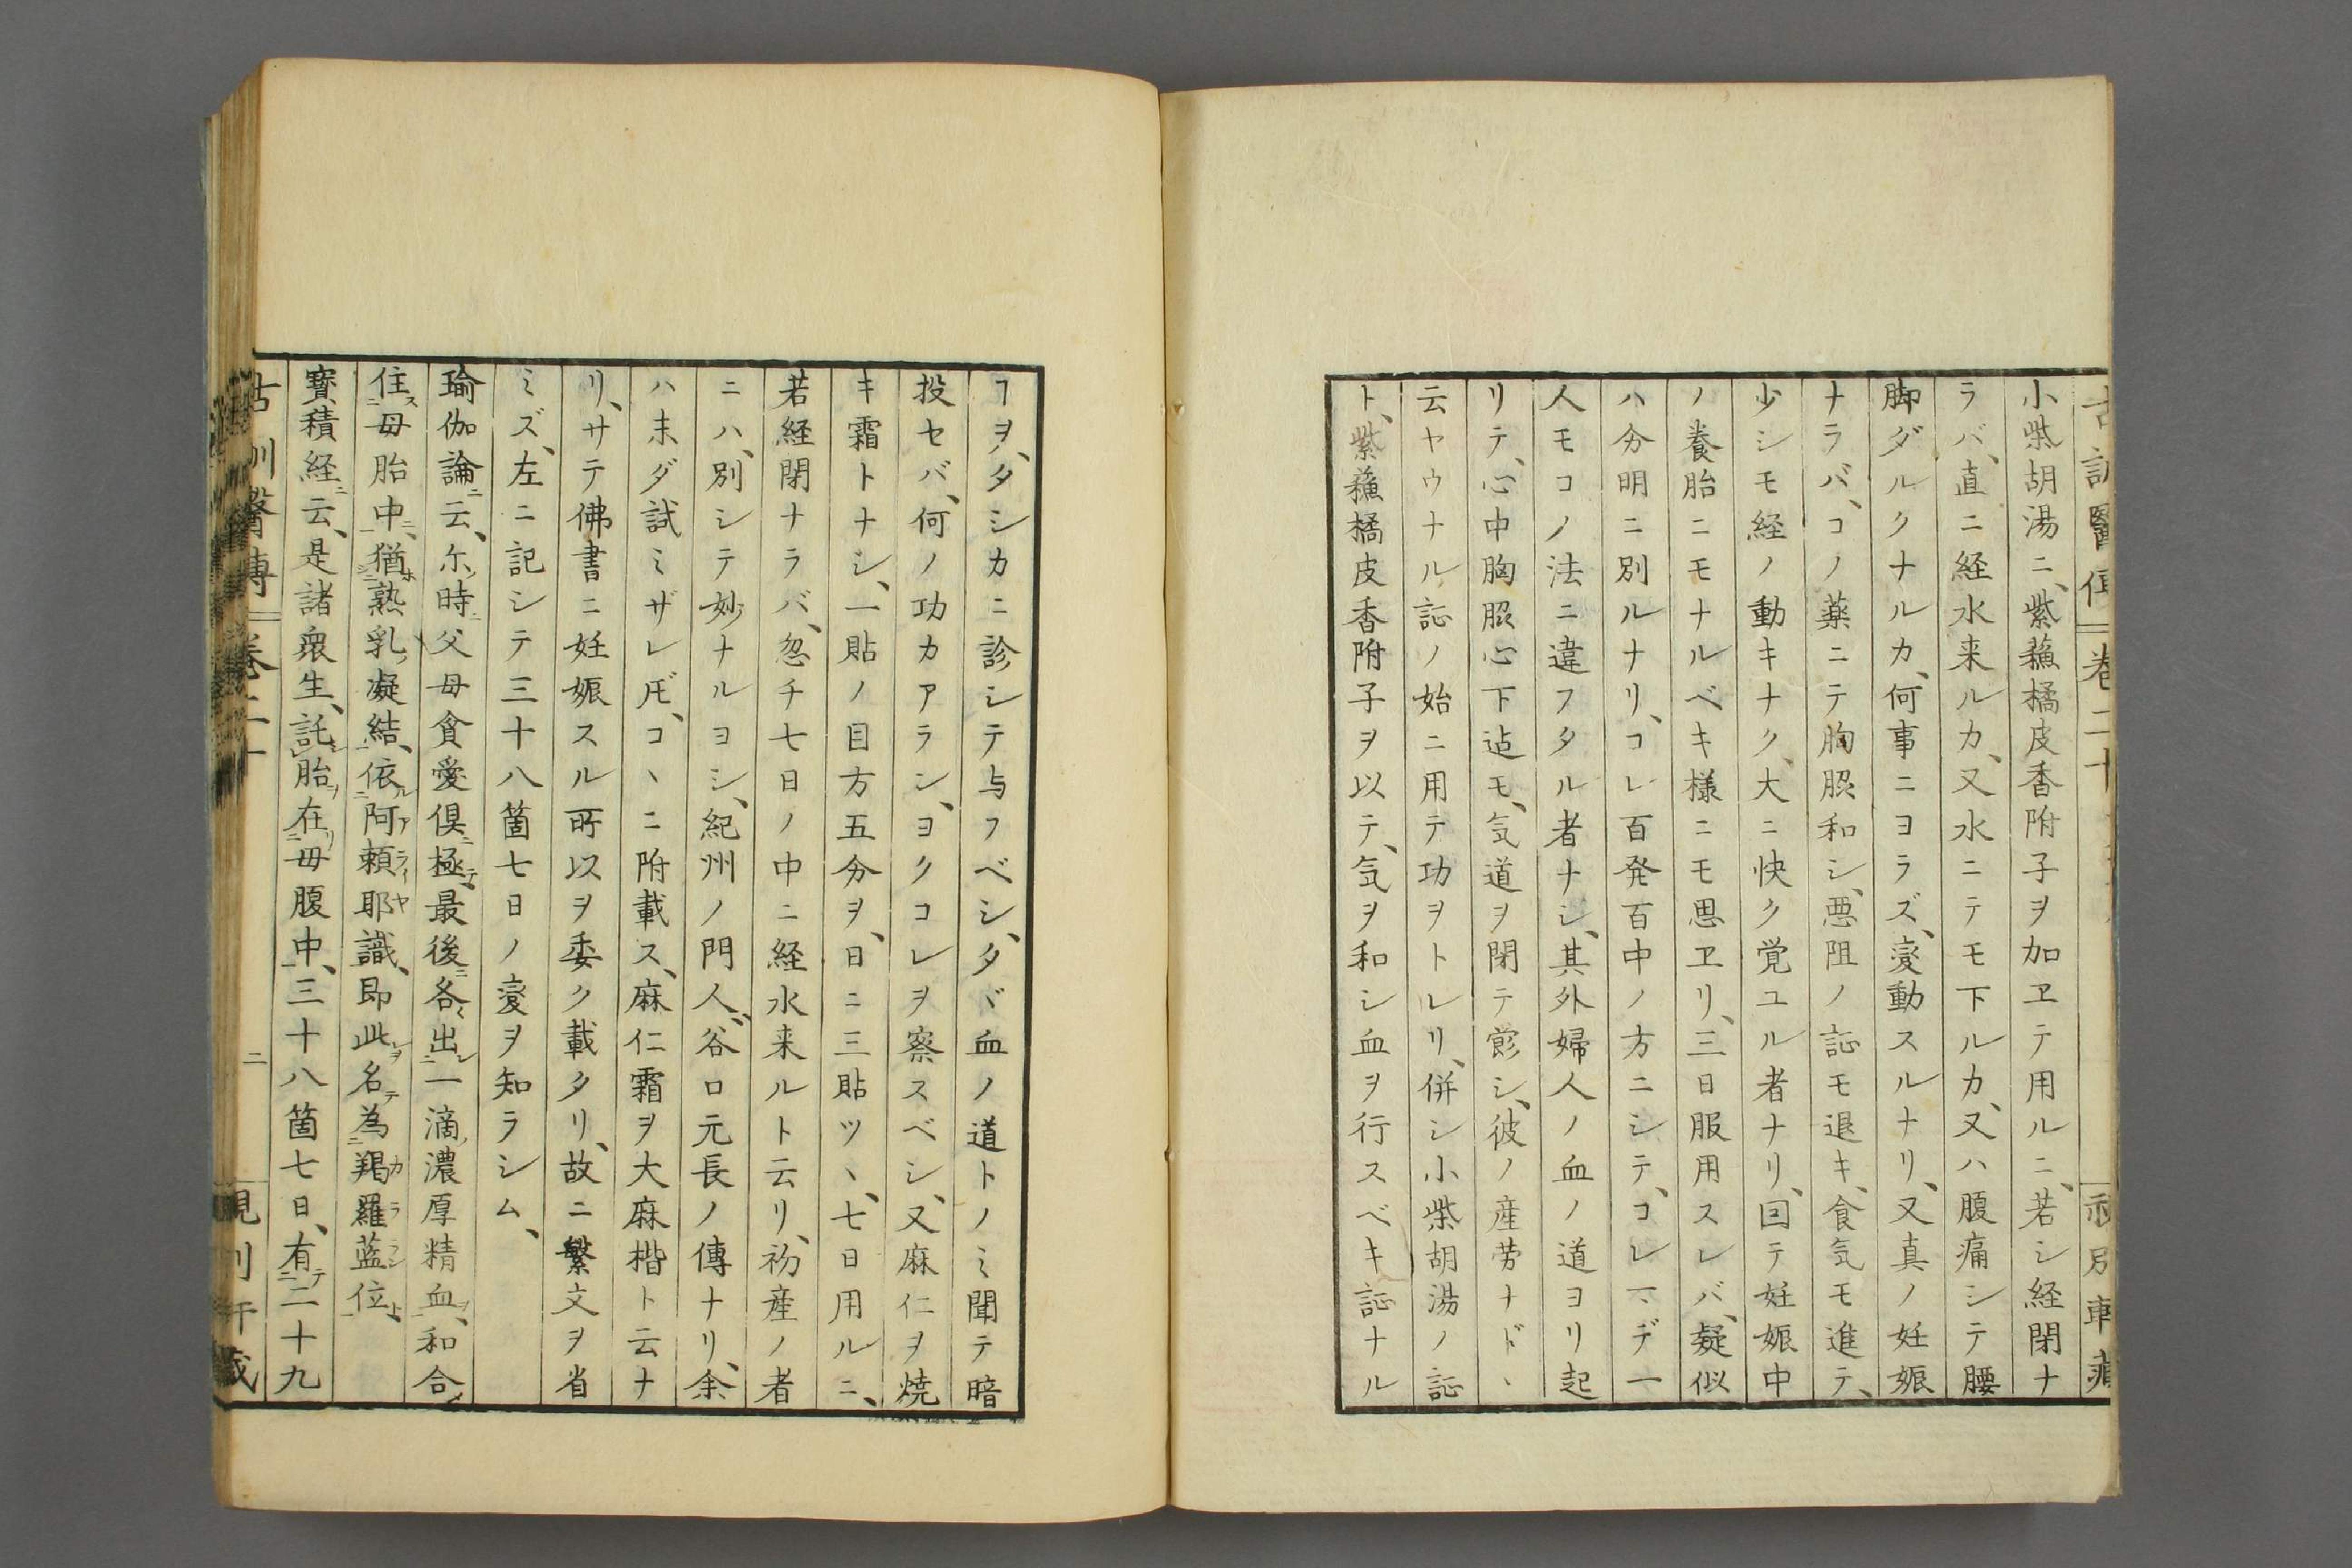 小柴胡湯ニ、紫蘓橘皮香附子ヲ加ヱテ用ルニ、若シ経閉ナ
ラバ、直ニ経水来ルカ、又水ニテモ下ルカ、又ハ腹痛シテ腰
脚ダルクナルカ、何事ニヨラズ、変動スルナリ、又真ノ妊娠
ナラバ、コノ薬ニテ胸脇和シ、悪阻ノ証モ退キ、食気モ進テ、
少シモ経ノ動キナク、大ニ快ク覚ユル者ナリ、回テ妊娠中
ノ養胎ニモナルベキ様ニモ思ヱリ、三日服用スレバ、疑似
ハ分明ニ別ルナリ、コレ百発百中ノ方ニシテ、コレマデ一
人モコノ法ニ違フタル者ナシ、其外婦人ノ血ノ道ヨリ起
リテ、心中胸脇心下迠モ、気道ヲ閉テ欝シ、彼ノ産労ナド丶
云ヤウナル証ノ始ニ用テ功ヲトレリ、併シ小柴胡湯ノ証
ト、紫蘓橘皮香附子ヲ以テ、気ヲ和シ血ヲ行スベキ証ナル
ヿヲ、タシカニ診シテ与フベシ、タヾ血ノ道トノミ聞テ暗
投セバ、何ノ功カアラン、ヨクコレヲ察スベシ、又麻仁ヲ焼
キ霜トナシ、一貼ノ目方五分ヲ、日ニ三貼ツ丶、七日用ルニ、
若経閉ナラバ、忽チ七日ノ中ニ経水来ルト云リ、初産ノ者
ニハ、別シテ妙ナルヨシ、紀州ノ門人、谷口元長ノ傳ナリ、余
ハ末ダ試ミザレ𪜈、コ丶ニ附載ス、麻仁霜ヲ大麻楷ト云ナ
リ、サテ佛書ニ妊娠スル所以ヲ委ク載タリ、故ニ繁文ヲ省
ミズ、左ニ記シテ三十八箇七日ノ変ヲ知ラシム、
瑜伽論ニ云、尓ノ時ニ父母貪愛倶ニ極テ、最後ニ各〻出シ一滴ノ濃厚精血ヲ、和合メ
住ス母胎中ニ、猶ホ熟乳ノ凝結、依ル阿頼耶識ニ、即此レヲ名テ為羯羅藍位ト、
寶積経ニ云、是諸衆生、託シ胎ヲ在リ母腹中ニ、三十八箇七日、有テ二十九
古訓醫傳 卷二十 二